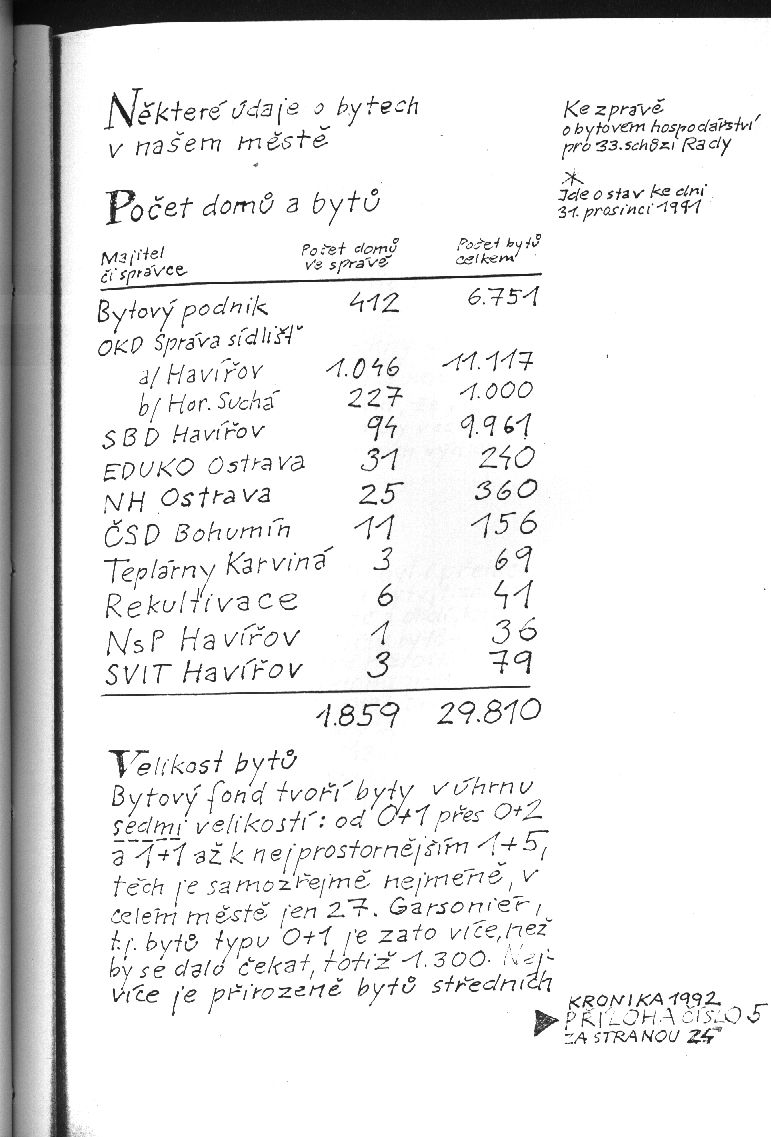 Některé údaje o bytech
v našem městě
Ke zprávě
o bytovém hospodářství
pro 33. schůzi Rady
*
Jde o stav ke dni
31. prosinci 1991
Počet domů a bytů
Majitel či správce Počet domů ve správě Počet bytů celkem
Bytový podnik 412 6.751
OKD Správa sídlišť
a/ Havířov 1.046 11.117
b/ Hor. Suchá 227 1.000
SBD Havířov 94 9.961
EDUKO Ostrava 31 240
NH Ostrava 25 360
ČSD Bohumín 11 156
Teplárny Karviná 3 69
Rekultivace 6 41
NsP Havířov 1 36
SVIT Havířov 3 79
1.859 29.810
Velikost bytů
Bytový fond tvoří byty v úhrnu
sedmi velikostí: od 0+1 přes 0+2
a 1+1 až k nejprostornějším 1+5,
těch je samozřejmě nejméně, v
celém městě jen 27. Garsonier,
t.j. bytů typu 0+1 je zato více, než
by se dalo čekat, totiž 1.300. Nej-
více je přirozeně bytů středních
KRONIKA 1992
PŘÍLOHA ČÍSLO 5
ZA STRANOU 25